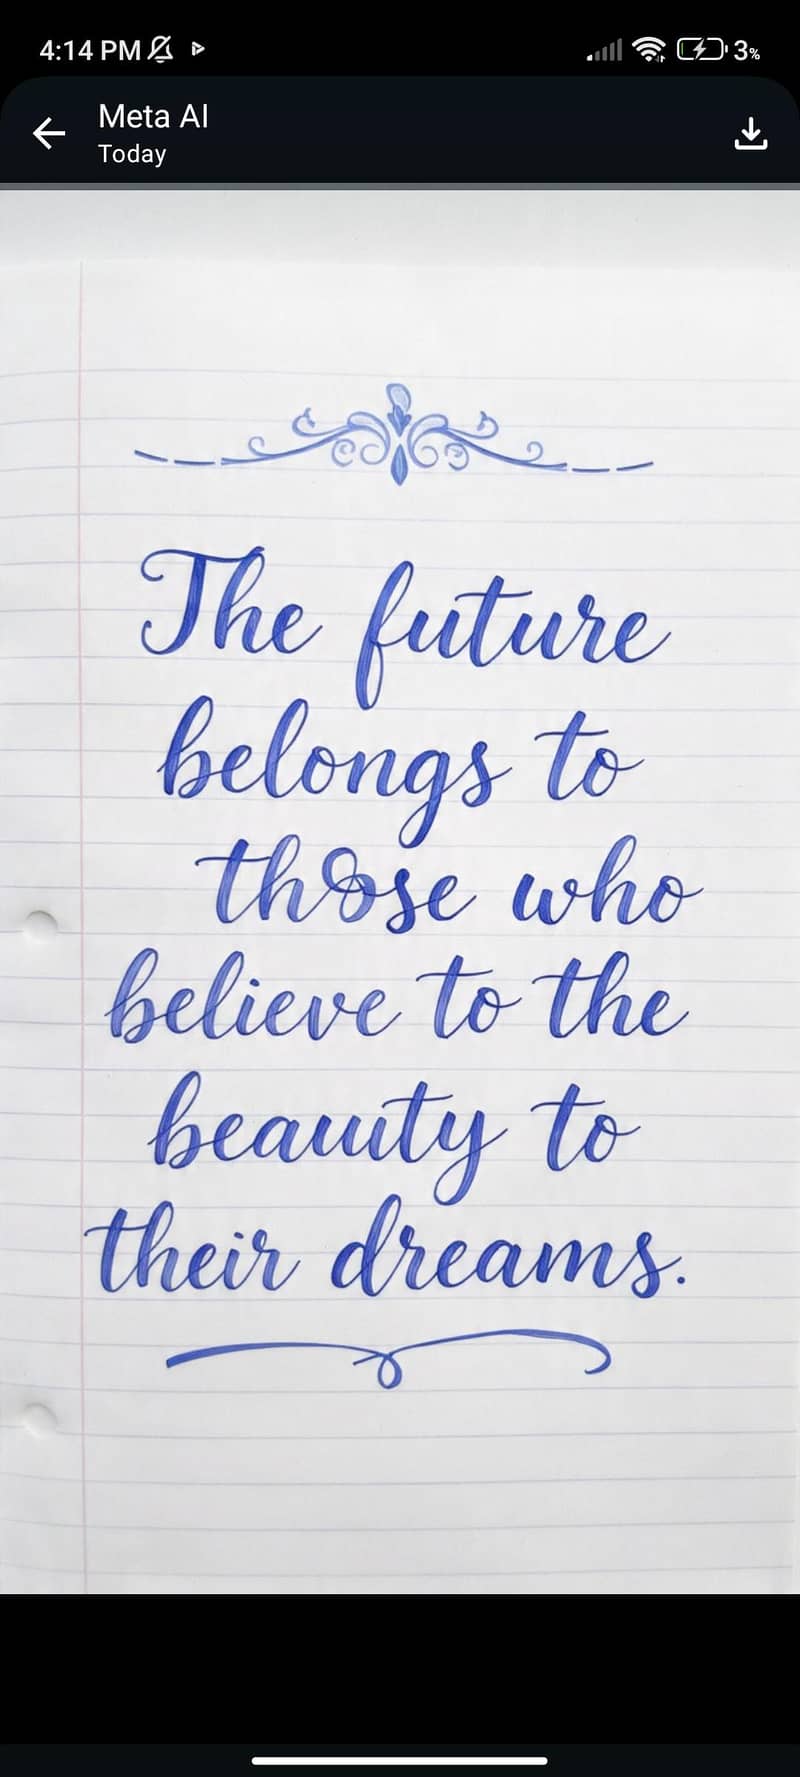 4:14 PM
3%
Meta AI
Today
The future
belongs to
those who
believe to the
beauuty to
their dreams.